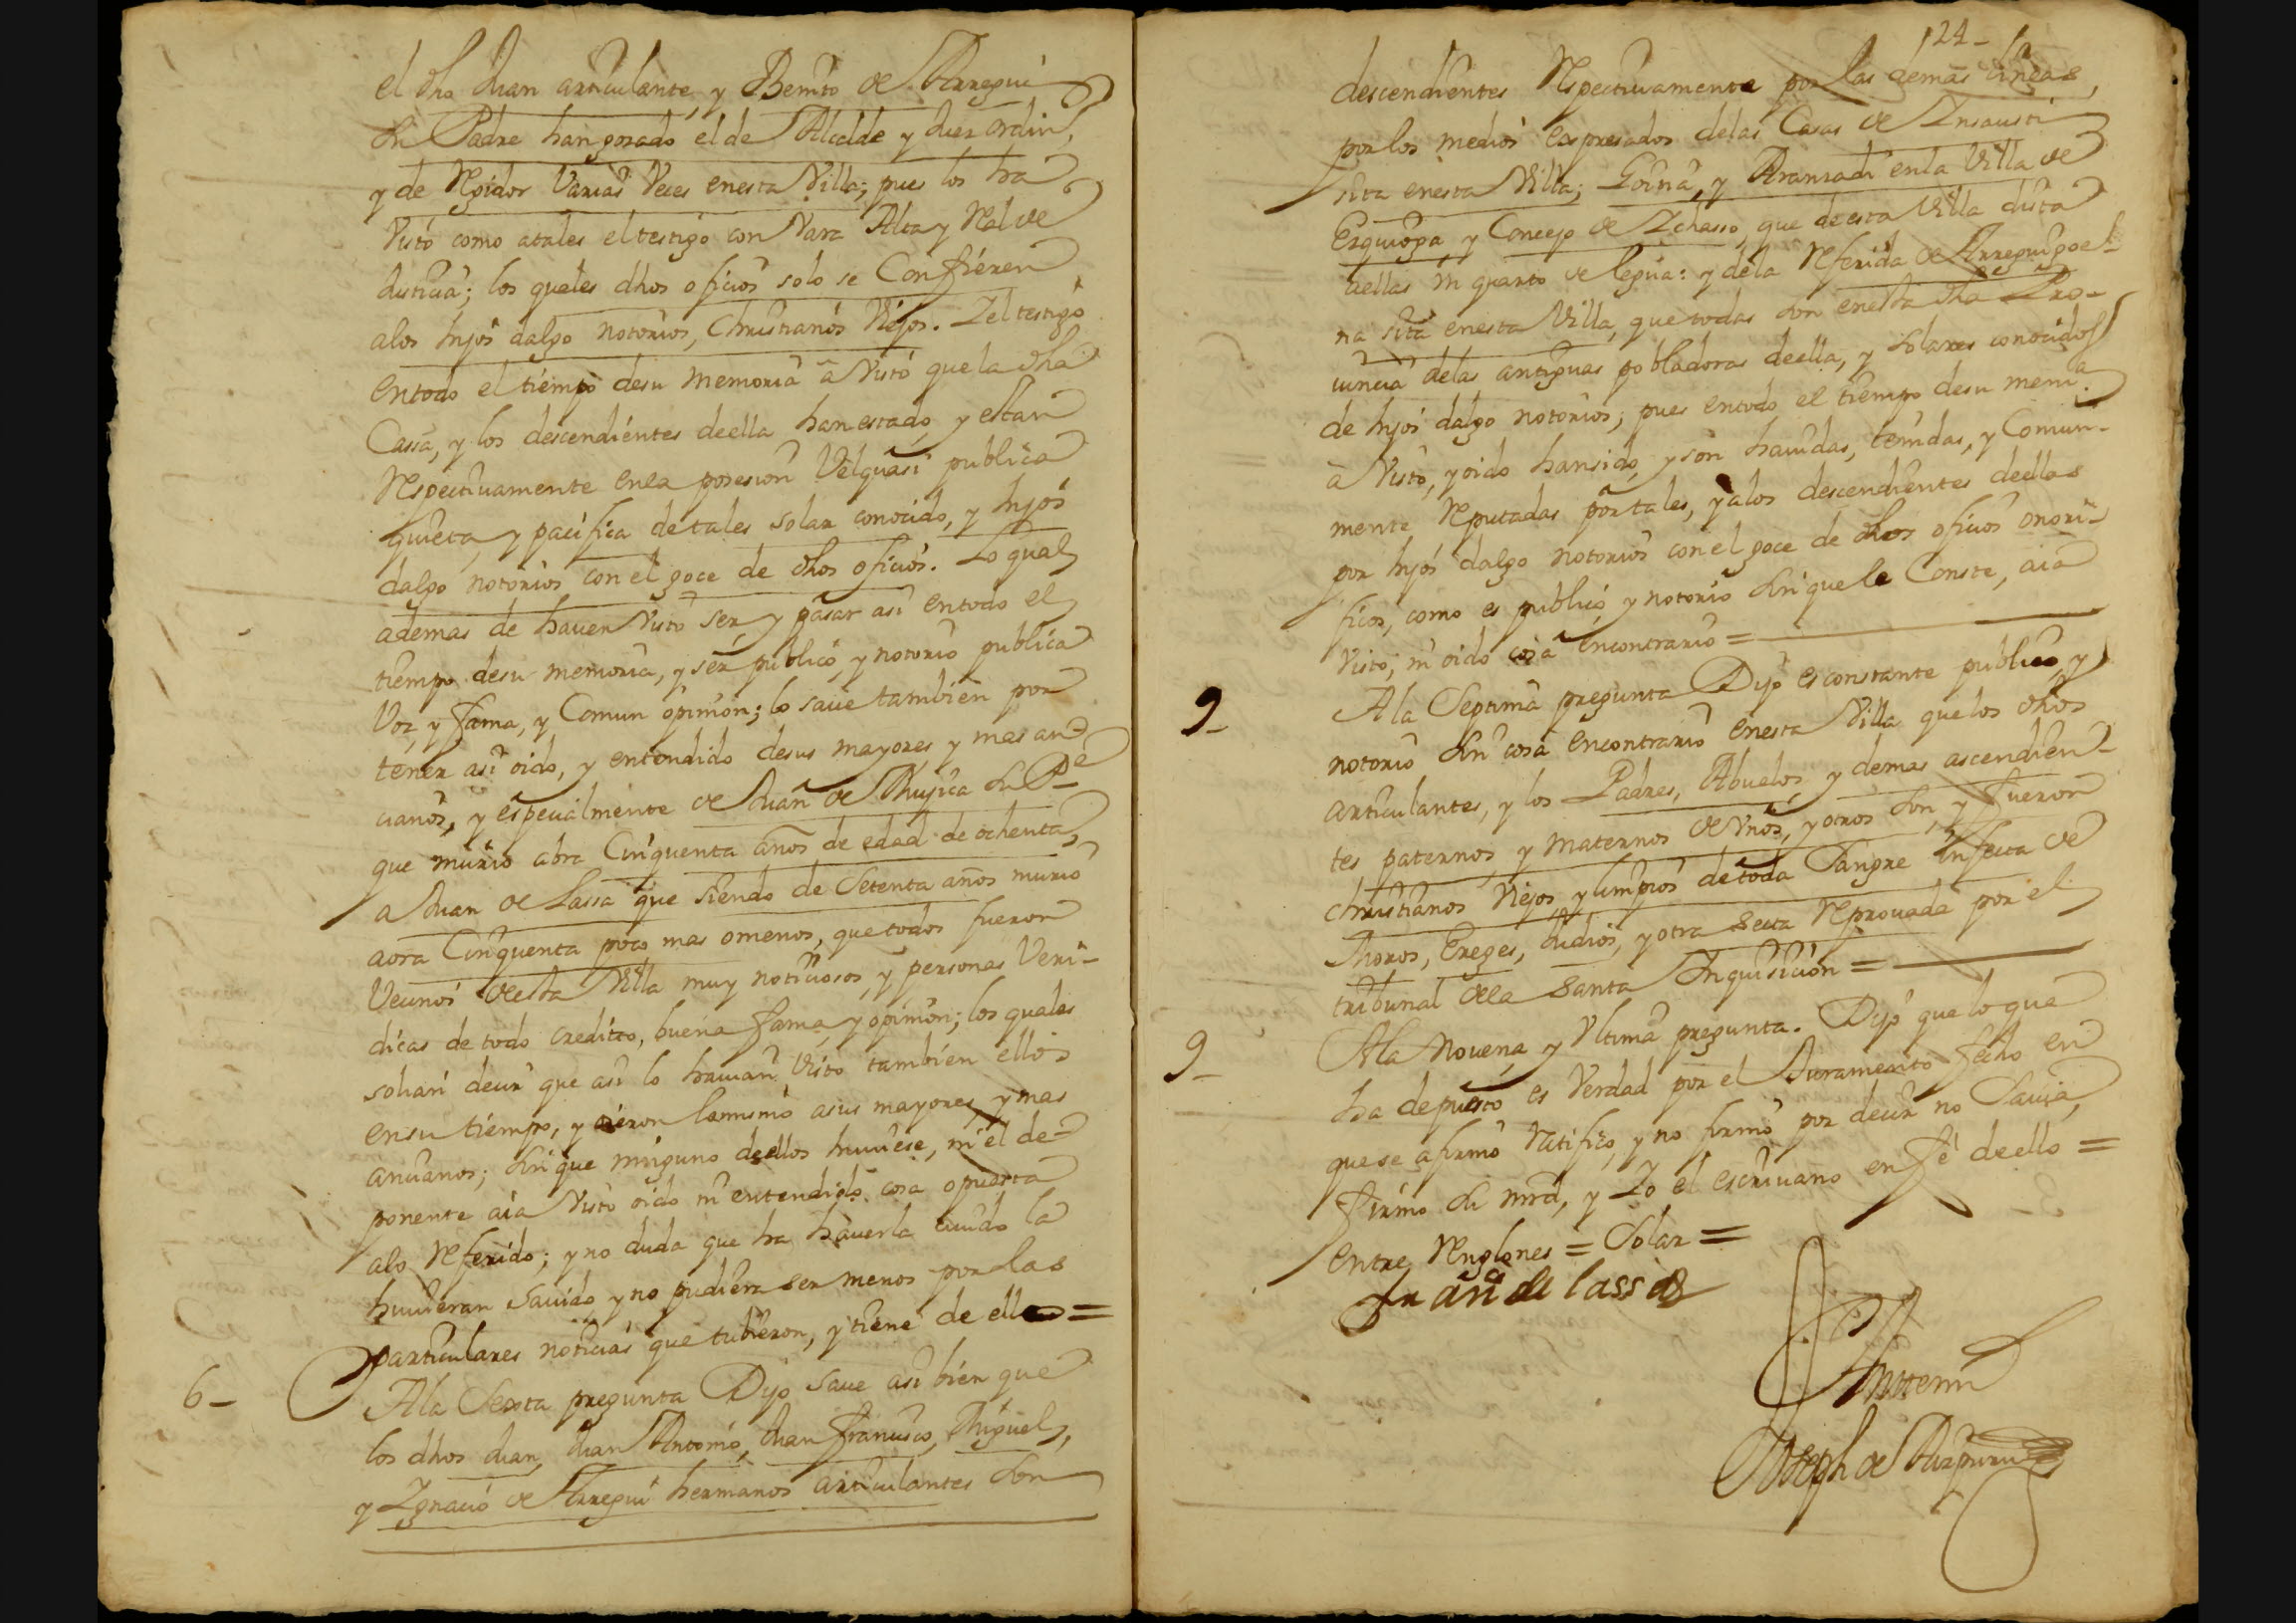 el dho Juan articulante, y Benito de Arregui
su Padre han gozado el de Alcalde y Juez ordin.º
y de Regidor Varias Veces enesta Villa; pues los ha
Visto como atales el testigo con Vara Alta y Real de
Justicia; los quales dhos oficios solo se Confieren
alos hijos dalgo notorios, Christianos Viejos. Y el testigo
entodo el tiempo desu memoria â Visto que la dha
Cassa, y los descendientes deella han estado, y estan
Respectiuamente enla posesion Velquasi publica
quieta, y pacifica detales solar conocido, y hijos
dalgo notorios con el goce de dhos oficios. Lo qual
ademas de hauer Visto ser, y pasar asi entodo el
tiempo desu memoria, y ser publico, y notorio publica
Voz, y fama, y Comun opinion; lo saue tambien por
tener asi oido, y entendido desus mayores, y mas an-
cianos, y espeçialmente de Juan de Mujica su P.e
que murio abra Cinquenta años de edad de ochenta,
a Juan de Lassa que siendo de Setenta años murio
aora Cinquenta poco mas omenos, que todos fueron
Veçinos deesta Villa muy notiçiosos, y personas Veri-
dicas de todo credito, buena fama, y opinion; los quales
solian decir que asi lo hauian Visto tambien ellos
ensu tiempo, y oieron lomismo asus mayores, y mas
ancianos; sin que ninguno deellos huuiese, ni el de-
ponente aia Visto oido ni entendido cosa opuesta
alo Referido; y no duda que ha hauerla auido la
huuieran Sauido, y no pudiera ser menos por las
particulares noticias que tubieron, y tiene de ello =
6- Ala Sexta pregunta Dijo saue asi bien que
los dhos Juan, Juan Antonio, Juan Francisco, Miguel,
y Ygnacio de Arregui hermanos articulantes son
124-
descendientes Respectiuamente por las demas lineas,
por los medios expresados delas Casas de Insausti
sita enesta Villa; Goina, y Aranzadi enla Villa de
Ezquioga, y Concejo de Ychasso, que deesta Villa dista
dellas un quarto de legua: y dela Referida de Arreguigoe-
na sita enesta Villa, que todas son enesta dha Pro-
uincia delas antiguas pobladoras deella, y Solares conocidos
de hijos dalgo notorios; pues entodo el tiempo desu mem.ª
â Visto, y oido han sido, y son hauidas, tenidas, y Comun-
mente Reputadas por tales, y alos descendientes deellas
por hijos dalgo notorios con el goce de dhos oficios onori-
ficos, como es publico, y notorio sin que le Conste, aia
Visto, ni oido cosa encontrario =
9- Ala Septima pregunta Dijo es constante publico, y
notorio sin cosa encontrario enesta Villa que los dhos
articulantes, y los Padres, Abuelos, y demas ascendien-
tes paternos, y maternos de Vnos, y otros son, y fueron
christianos Viejos, y limpios de toda Sangre Infecta de
Moros, Ereges, Judios, y otra secta Reprouada por el
tribunal dela Santa Inquisicion =
9- Ala Nouena, y Vltima pregunta. Dijo que lo que
ha depuesto es Verdad por el Juramento fecho en
que se afirmo Ratifico, y no firmo por decir no Sauia,
firmo su mrd, y Yo el escriuano en fe deello =
Entre Renglones = Solar =
Juan de lassa
Antemi
Joseph de Aizpuru